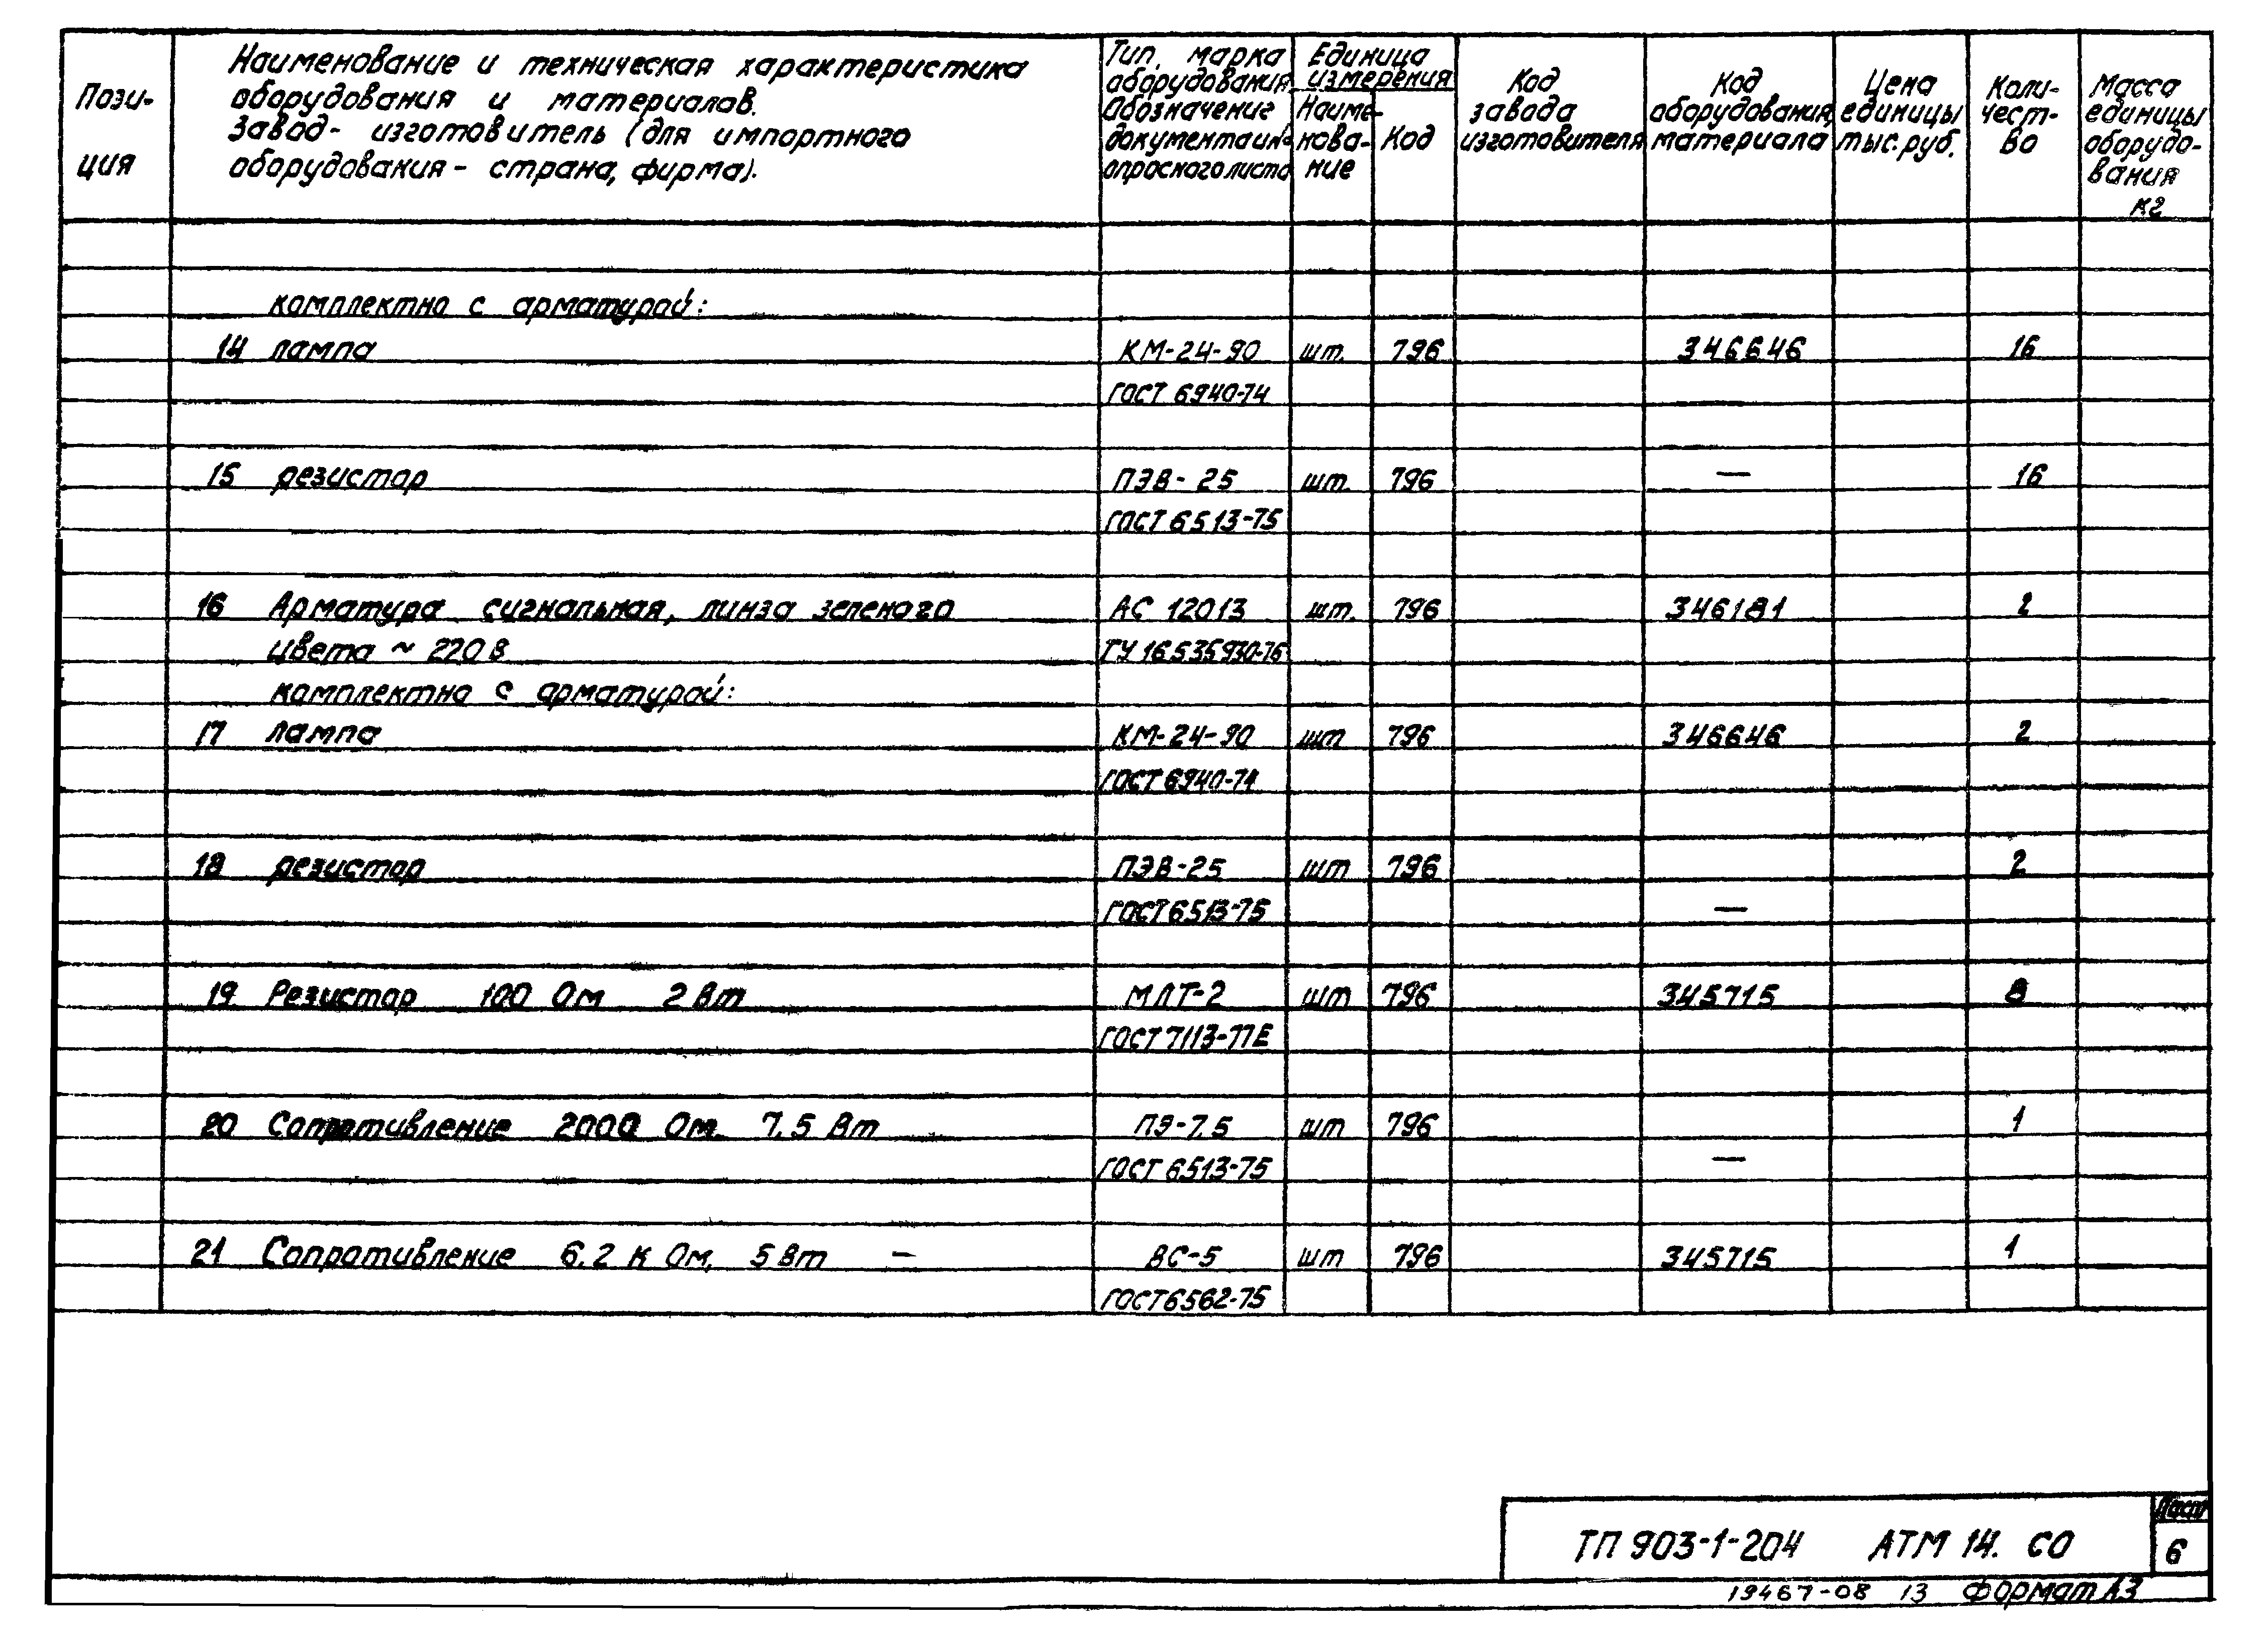 Пози-
ция
Наименование и техническая характеристика
оборудования и материалов.
Завод- изготовитель (для импортного
оборудования - страна, фирма).
Тип, марка
оборудования
Обозначение
документа и №
опросного листа
Единица
измерения
Наиме-
нова-
ние
Код
Код
завода
изготовителя
Код
оборудования,
материала
Цена
единицы
тыс.руб.
Коли-
чест-
во
Масса
единицы
оборудо-
вания
кг
комплектно с арматурой:
14 лампа КМ-24-90 шт. 796 346646 16
ГОСТ 6940-74
15 резистор ПЭВ- 25 шт. 796 — 16
ГОСТ 6513-75
16 Арматура сигнальная, линза зеленого АС 12013 шт. 796 346181 2
цвета ~ 220 в ТУ 16.535930-76
комплектно с арматурой:
17 лампа КМ-24-90 шт 796 346646 2
ГОСТ 6940-74
18 резистор ПЭВ-25 шт 796 2
ГОСТ 6513-75 —
19 Резистор 100 Ом 2 Вт МЛТ-2 шт 796 345715 8
ГОСТ 7113-77Е
20 Сопротивление 2000 Ом. 7.5 Вт ПЭ-7.5 шт 796 1
ГОСТ 6513-75 —
21 Сопротивление 6.2 к Ом, 5 Вт — ВС-5 шт 796 345715 1
ГОСТ 6562-75
ТП 903-1-204 АТМ 14. СО
Лист
6
19467-08 13 Формат А3